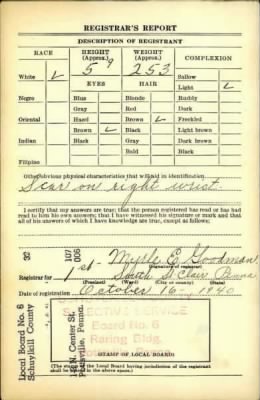 REGISTRAR'S REPORT
DESCRIPTION OF REGISTRANT
RACE HEIGHT (Approx.) WEIGHT (Approx.) COMPLEXION
5 9 253
White ✓ EYES HAIR Sallow
Light ✓
Negro Blue Blonde Ruddy
Gray Red Dark
Oriental Hazel Brown ✓ Freckled
Brown ✓ Black Light brown
Indian Black Gray Dark brown
Bald Black
Filipino
Other obvious physical characteristics that will aid in identification
Scar on right wrist.
I certify that my answers are true; that the person registered has read or has had
read to him his own answers; that I have witnessed his signature or mark and that
all of his answers of which I have knowledge are true, except as follows:
32
107
006
Myrle E. Goodman
(Signature of registrar)
Registrar for 1st South St. Clair Penna
(Precinct) (Ward) (City or county) (State)
Date of registration October 16 - 1940
Local Board No. 6
Schuylkill County
N. Center St.
Pottsville, Penna.
SELECTIVE SERVICE
Board No. 6
Raring Bldg.
(STAMP OF LOCAL BOARD)
(The stamp of the Local Board having jurisdiction of the registrant
shall be placed in the above space.)